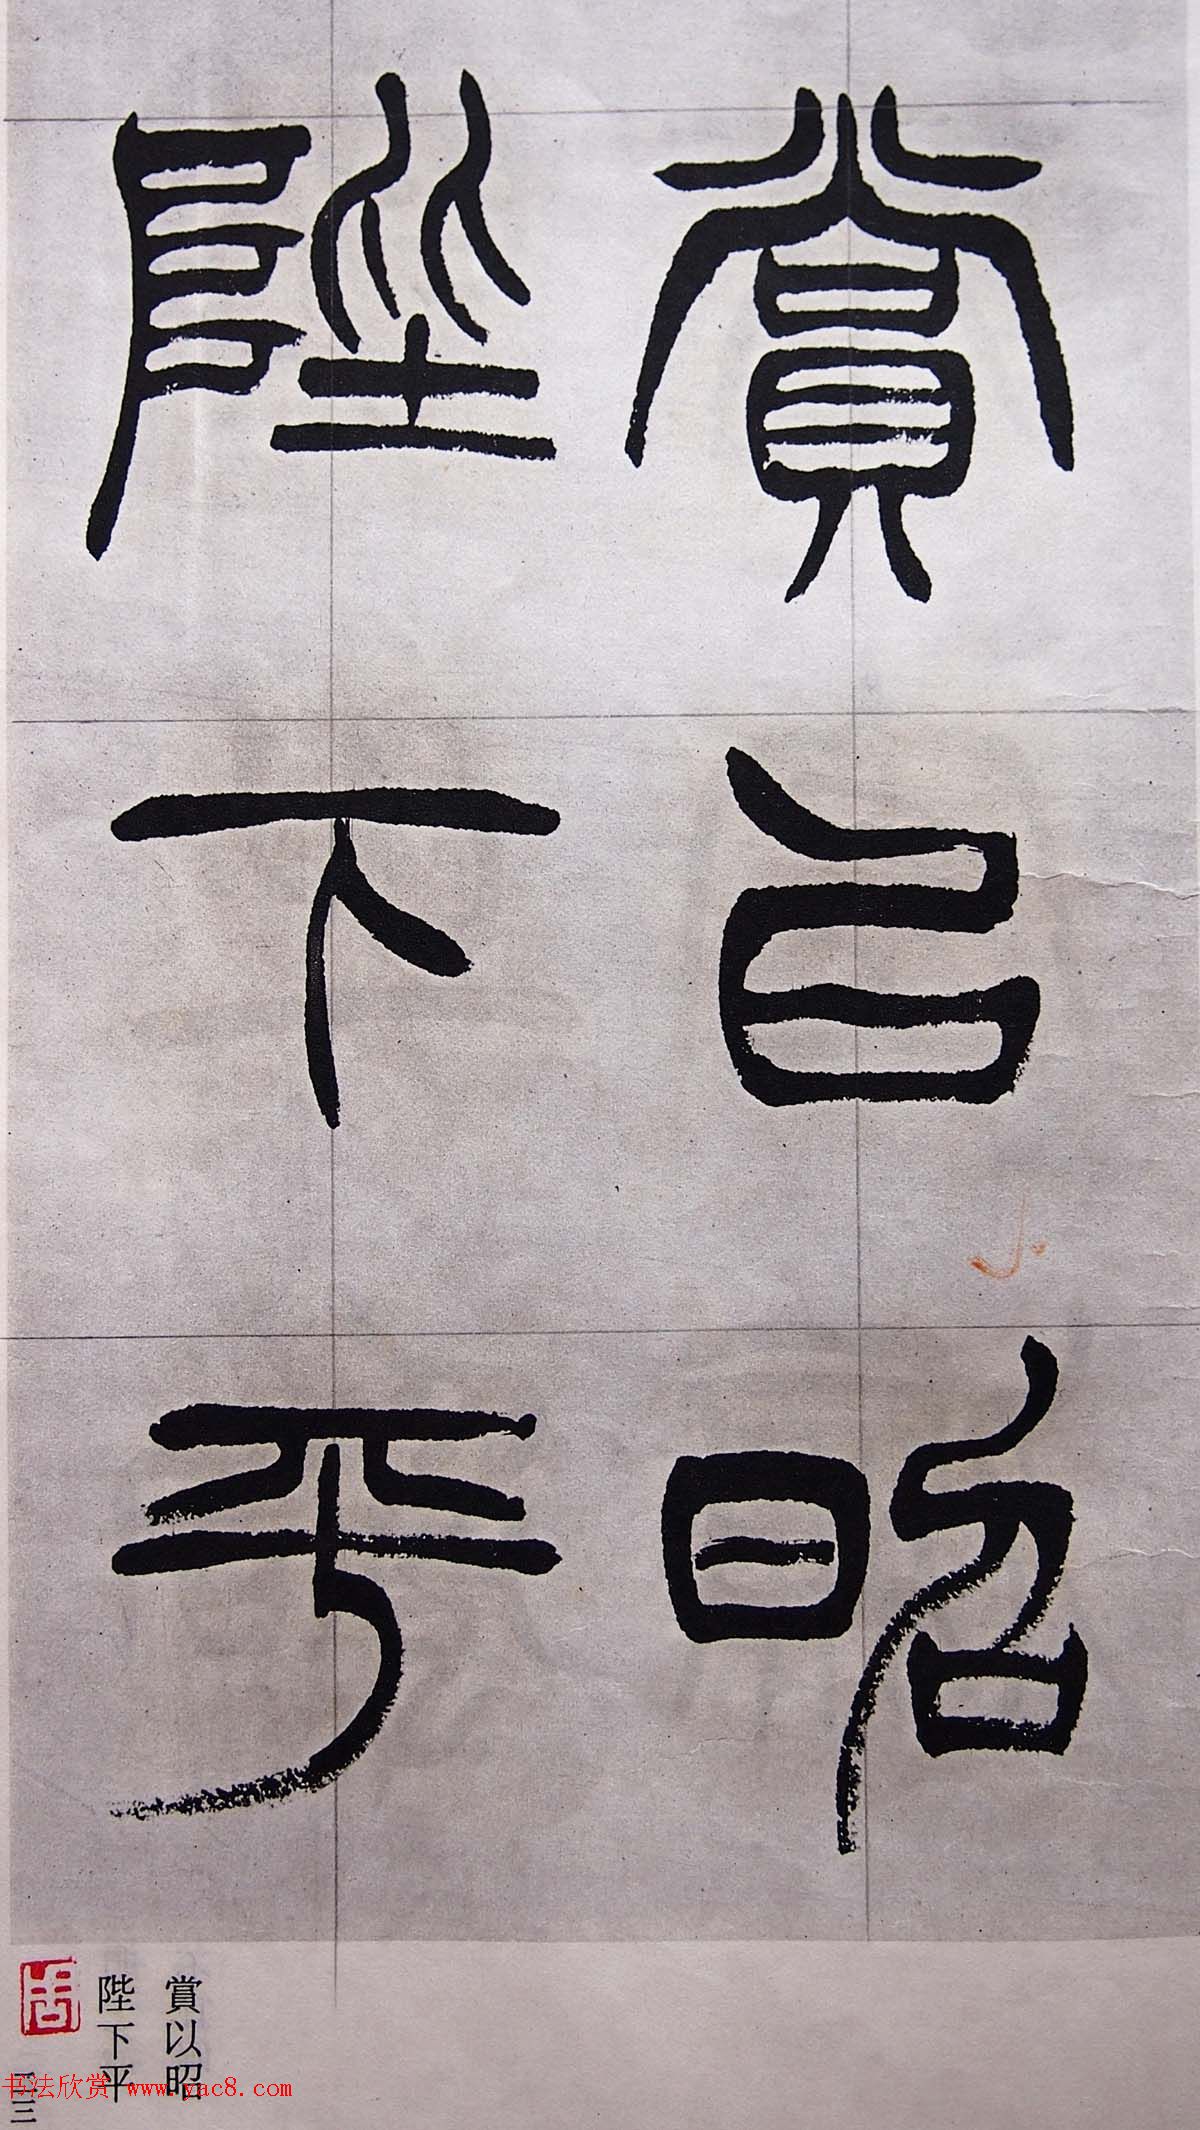 賞以昭
陛下平
賞以昭
陛下平
书法欣赏 www.yac8.com